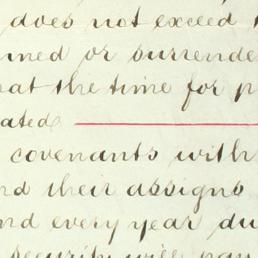 does not exceed
med or surrende
at the time for p
ated
covenants with
nd their assigns
nd every year du
security will pay